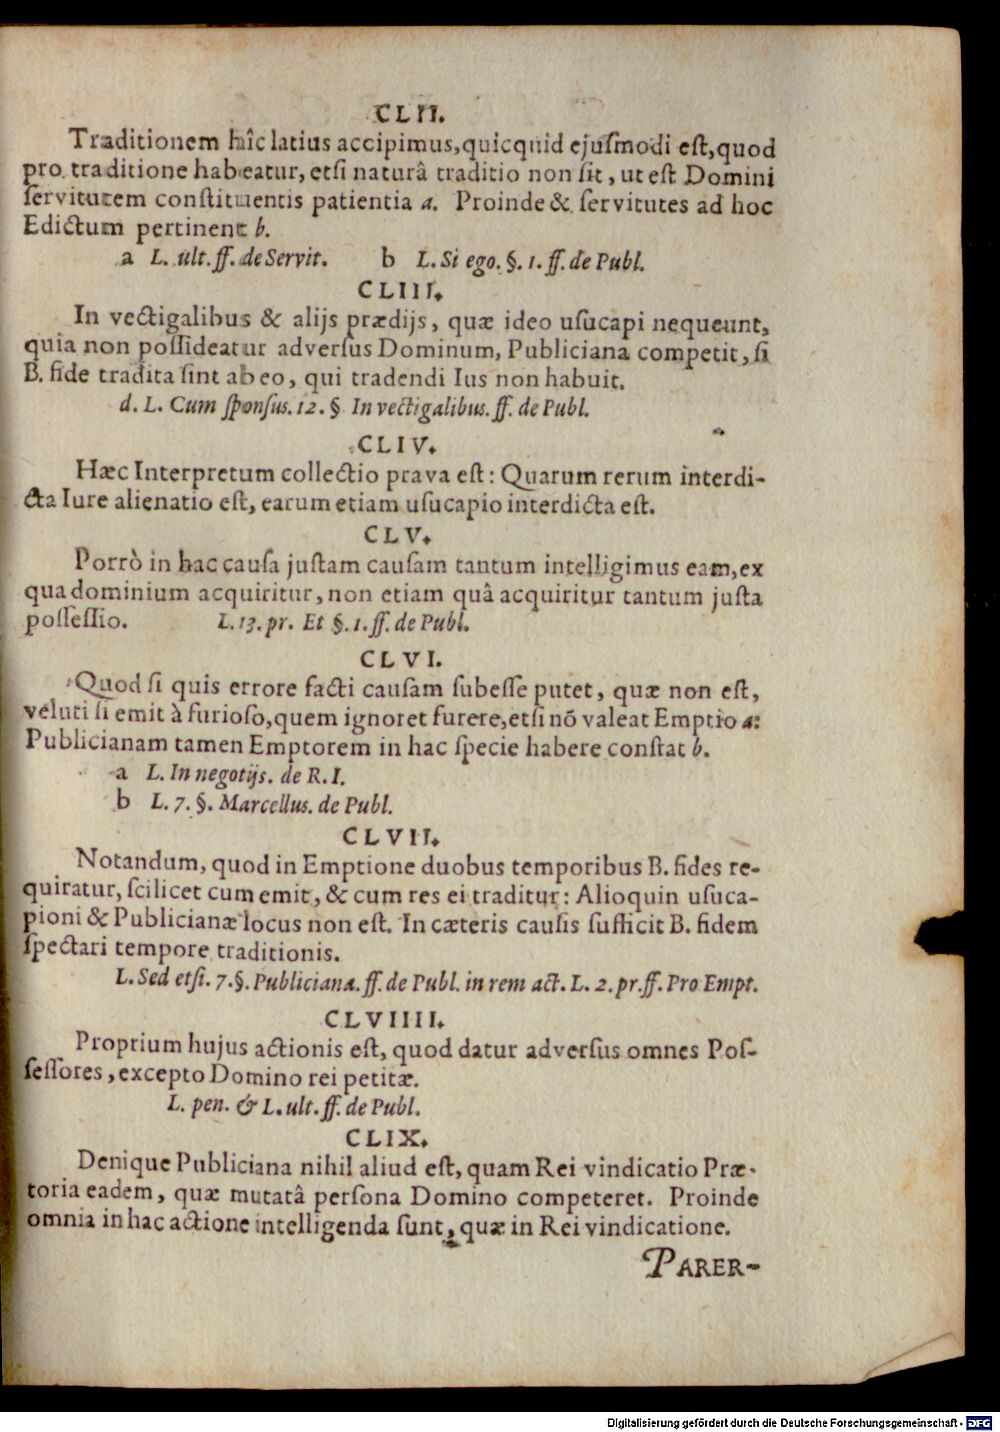 CLII.
Traditionem hîc latius accipimus, quicquid ejuſmodi eſt, quod
pro traditione habeatur, etsi naturâ traditio non ſit, ut eſt Domini
ſervitutem conſtituentis patientia a. Proinde & ſervitutes ad hoc
Edictum pertinent b.
a L. ult. ff. de Servit. b L. Si ego. §. 1. ff. de Publ.
CLIII.
In vectigalibus & alijs prædijs, quæ ideo uſucapi nequeunt,
quia non poſſideatur adverſus Dominum, Publiciana competit, ſi
B. fide tradita ſint ab eo, qui tradendi Ius non habuit.
d. L. Cum ſponſus. 12. § In vectigalibus. ff. de Publ.
CLIV.
Hæc Interpretum collectio prava eſt: Quarum rerum interdi-
cta Iure alienatio eſt, earum etiam uſucapio interdicta eſt.
CLV.
Porrò in hac cauſa juſtam cauſam tantum intelligimus eam, ex
qua dominium acquiritur, non etiam quâ acquiritur tantum juſta
poſſeſſio. L. 13. pr. Et §. 1. ff. de Publ.
CLVI.
Quod ſi quis errore facti cauſam ſubeſſe putet, quæ non eſt,
veluti ſi emit à furioſo, quem ignoret furere, etſi nō valeat Emptio a:
Publicianam tamen Emptorem in hac ſpecie habere conſtat b.
a L. In negotijs. de R. I.
b L. 7. §. Marcellus. de Publ.
CLVII.
Notandum, quod in Emptione duobus temporibus B. fides re-
quiratur, ſcilicet cum emit, & cum res ei traditur: Alioquin uſuca-
pioni & Publicianæ locus non eſt. In cæteris cauſis ſufficit B. fidem
ſpectari tempore traditionis.
L. Sed etſi. 7. §. Publiciana. ff. de Publ. in rem act. L. 2. pr. ff. Pro Empt.
CLVIIII.
Proprium hujus actionis eſt, quod datur adverſus omnes Poſ-
ſeſſores, excepto Domino rei petitæ.
L. pen. & L. ult. ff. de Publ.
CLIX.
Denique Publiciana nihil aliud eſt, quam Rei vindicatio Præ-
toria eadem, quæ mutatâ perſona Domino competeret. Proinde
omnia in hac actione intelligenda ſunt, quæ in Rei vindicatione.
PARER-
Digitalisierung gefördert durch die Deutsche Forschungsgemeinschaft - DFG